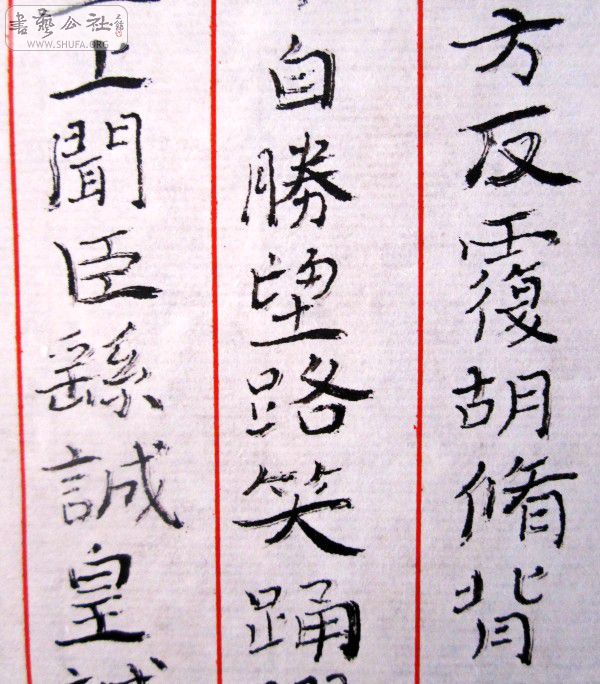 方反覆胡脩背
自勝望路笑踊
上聞臣繇誠皇
書藝公社
WWW.SHUFA.ORG